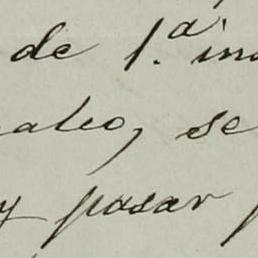 de 1.ª in
aleo, se
y pasar p